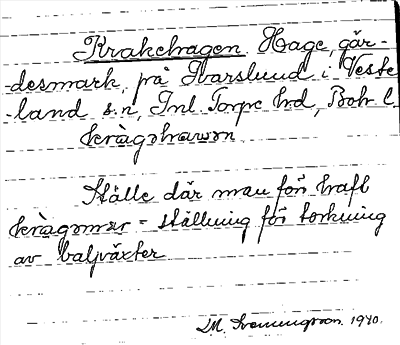 Krakehagen. Hage, går-
desmark, på Ivarslund i Veste
land s.n, Inl. Torpe hd, Boh l.
kràgəhawən
Ställe där man förr haft
kràgəmər = ställning för torkning
av baljväxter
M. Svenungsson. 1940.